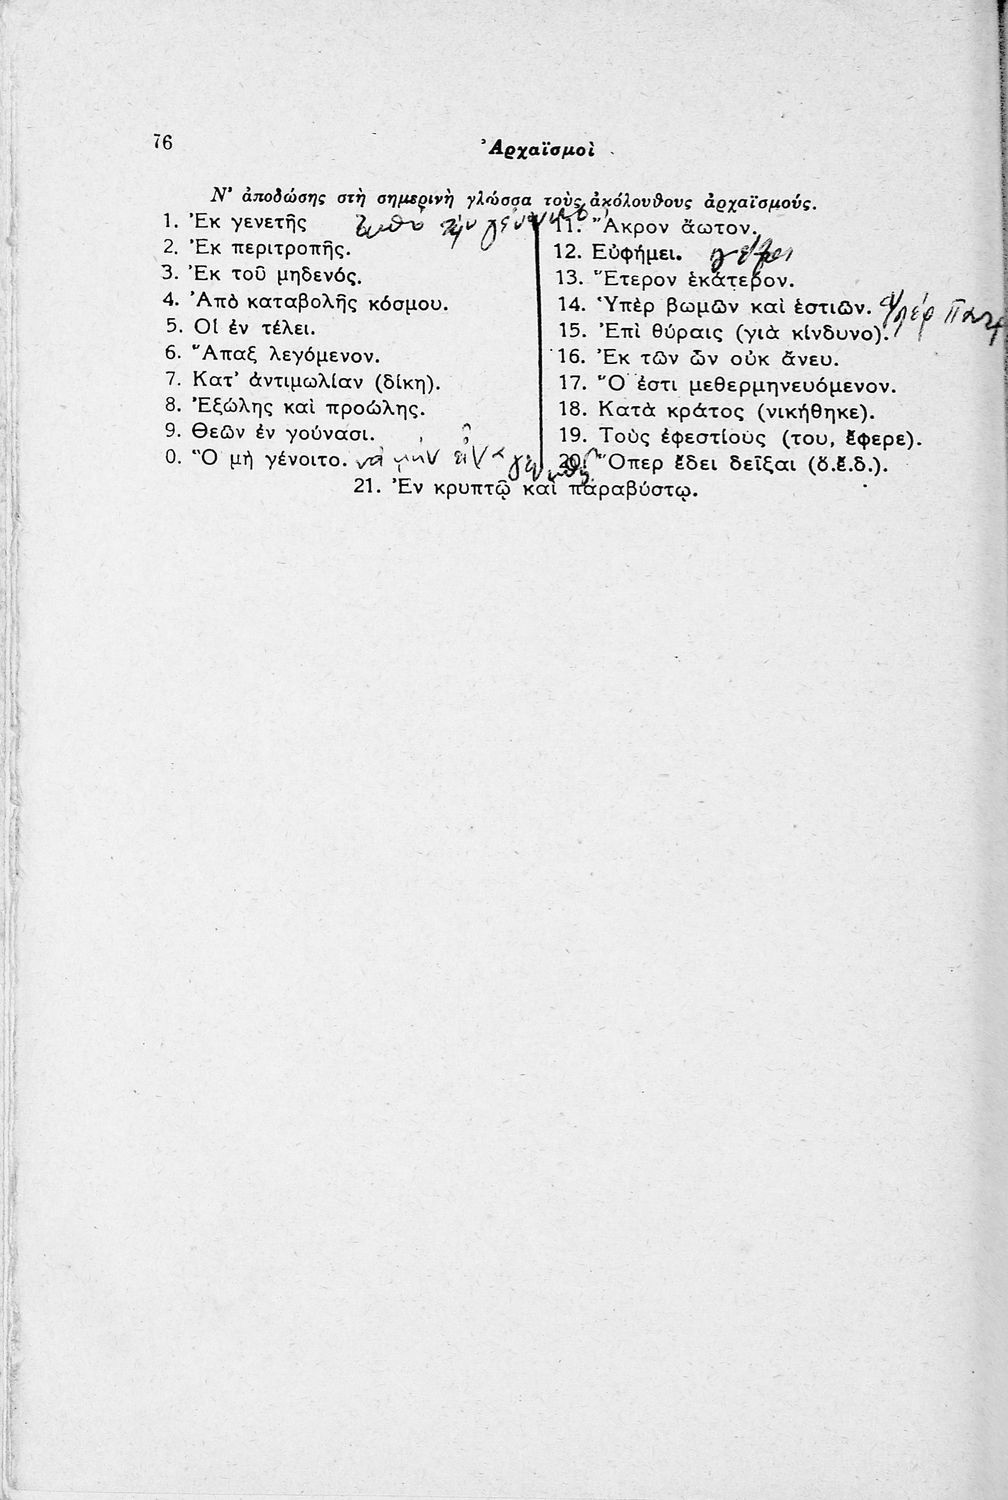 76
Ἀρχαϊσμοὶ
Ν' ἀποδώσης στὴ σημερινὴ γλώσσα τοὺς ἀκόλουθους ἀρχαϊσμούς.
1. Ἐκ γενετῆς
2. Ἐκ περιτροπῆς.
3. Ἐκ τοῦ μηδενός.
4. Ἀπὸ καταβολῆς κόσμου.
5. Οἱ ἐν τέλει.
6. Ἅπαξ λεγόμενον.
7. Κατ' ἀντιμωλίαν (δίκη).
8. Ἐξώλης καὶ προώλης.
9. Θεῶν ἐν γούνασι.
0. Ὃ μὴ γένοιτο. νὰ μὴν
11. Ἄκρον ἄωτον.
12. Εὐφήμει.
13. Ἕτερον ἑκάτερον.
14. Ὑπὲρ βωμῶν καὶ ἑστιῶν. Ὑπέρ
15. Ἐπὶ θύραις (γιὰ κίνδυνο).
16. Ἐκ τῶν ὧν οὐκ ἄνευ.
17. Ὅ ἐστι μεθερμηνευόμενον.
18. Κατὰ κράτος (νικήθηκε).
19. Τοὺς ἐφεστίους (του, ἔφερε).
20. Ὅπερ ἔδει δεῖξαι (ὅ.ἔ.δ.).
21. Ἐν κρυπτῷ καὶ παραβύστῳ.